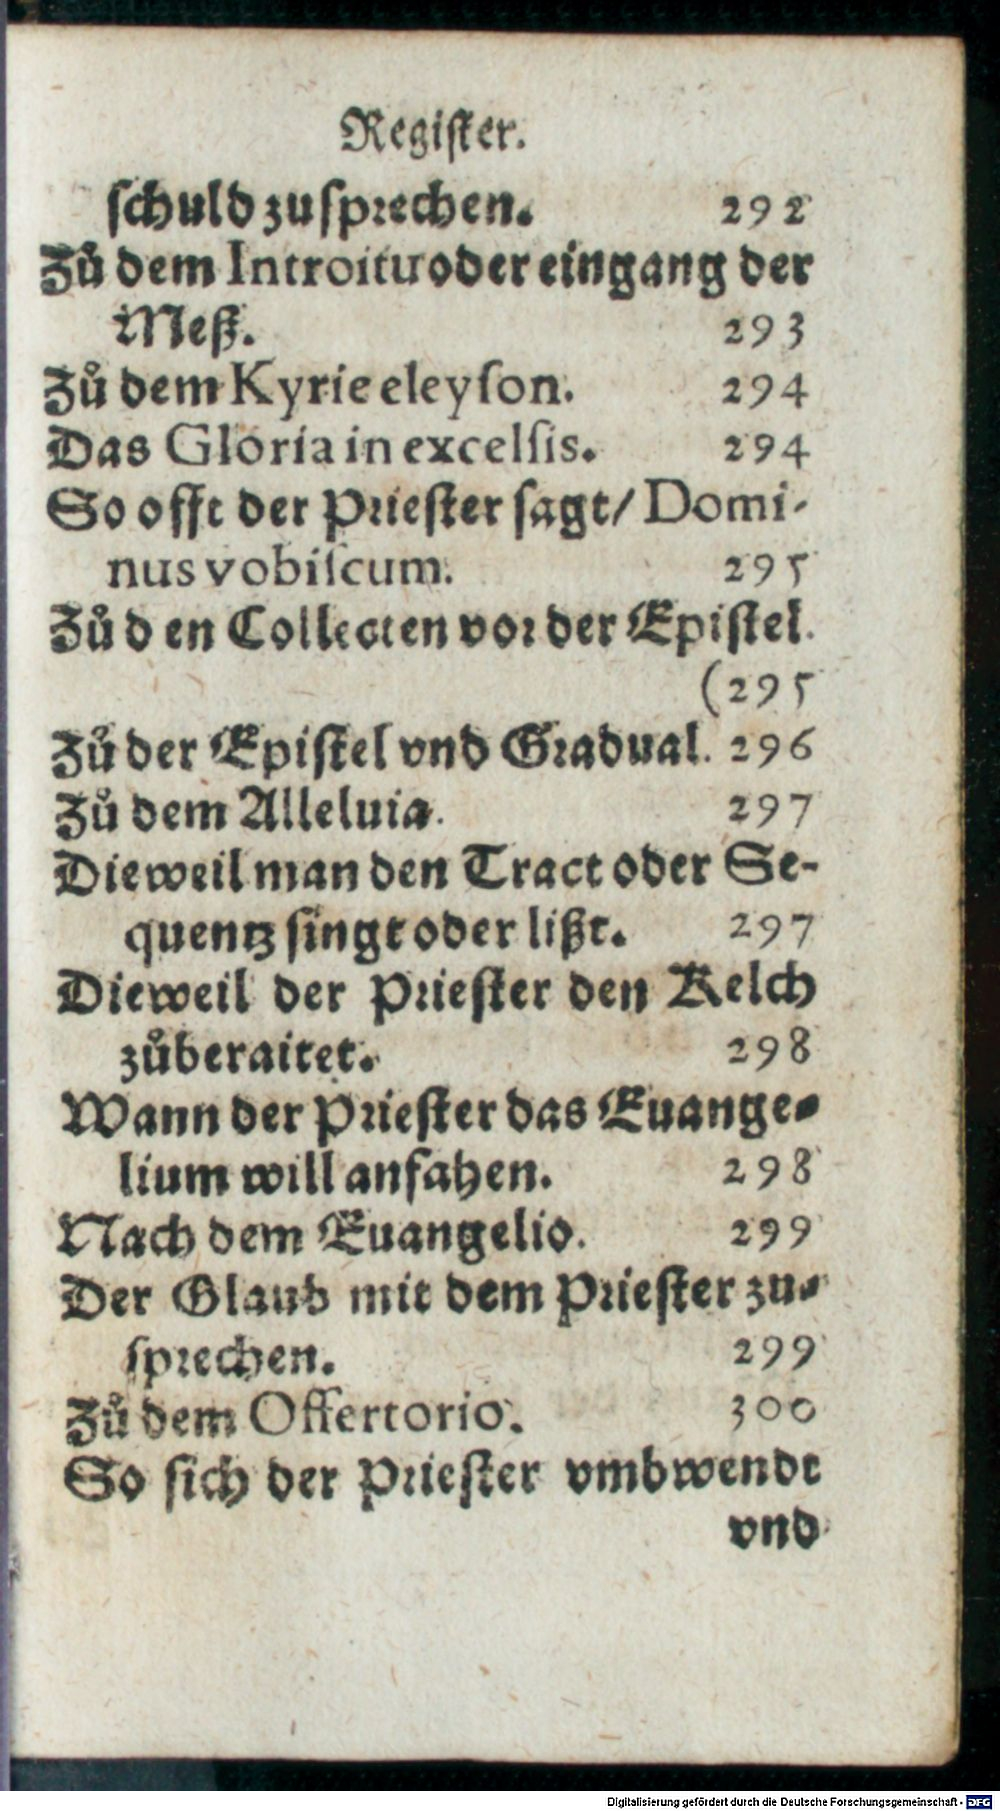 Register.
schuld zusprechen. 292
Zů dem Introitu oder eingang der
Meß. 293
Zů dem Kyrie eleyson. 294
Das Gloria in excelsis. 294
So offt der Priester sagt/ Domi-
nus vobiscum. 295
Zů den Collecten vor der Epistel.
(295
Zů der Epistel vnd Gradual. 296
Zů dem Alleluia. 297
Dieweil man den Tract oder Se-
quentz singt oder lißt. 297
Dieweil der Priester den Kelch
zůberaitet. 298
Wann der Priester das Euange-
lium will anfahen. 298
Nach dem Euangelio. 299
Der Glaub mit dem Priester zu-
sprechen. 299
Zů dem Offertorio. 300
So sich der Priester vmbwendt
vnd
Digitalisierung gefördert durch die Deutsche Forschungsgemeinschaft - DFG